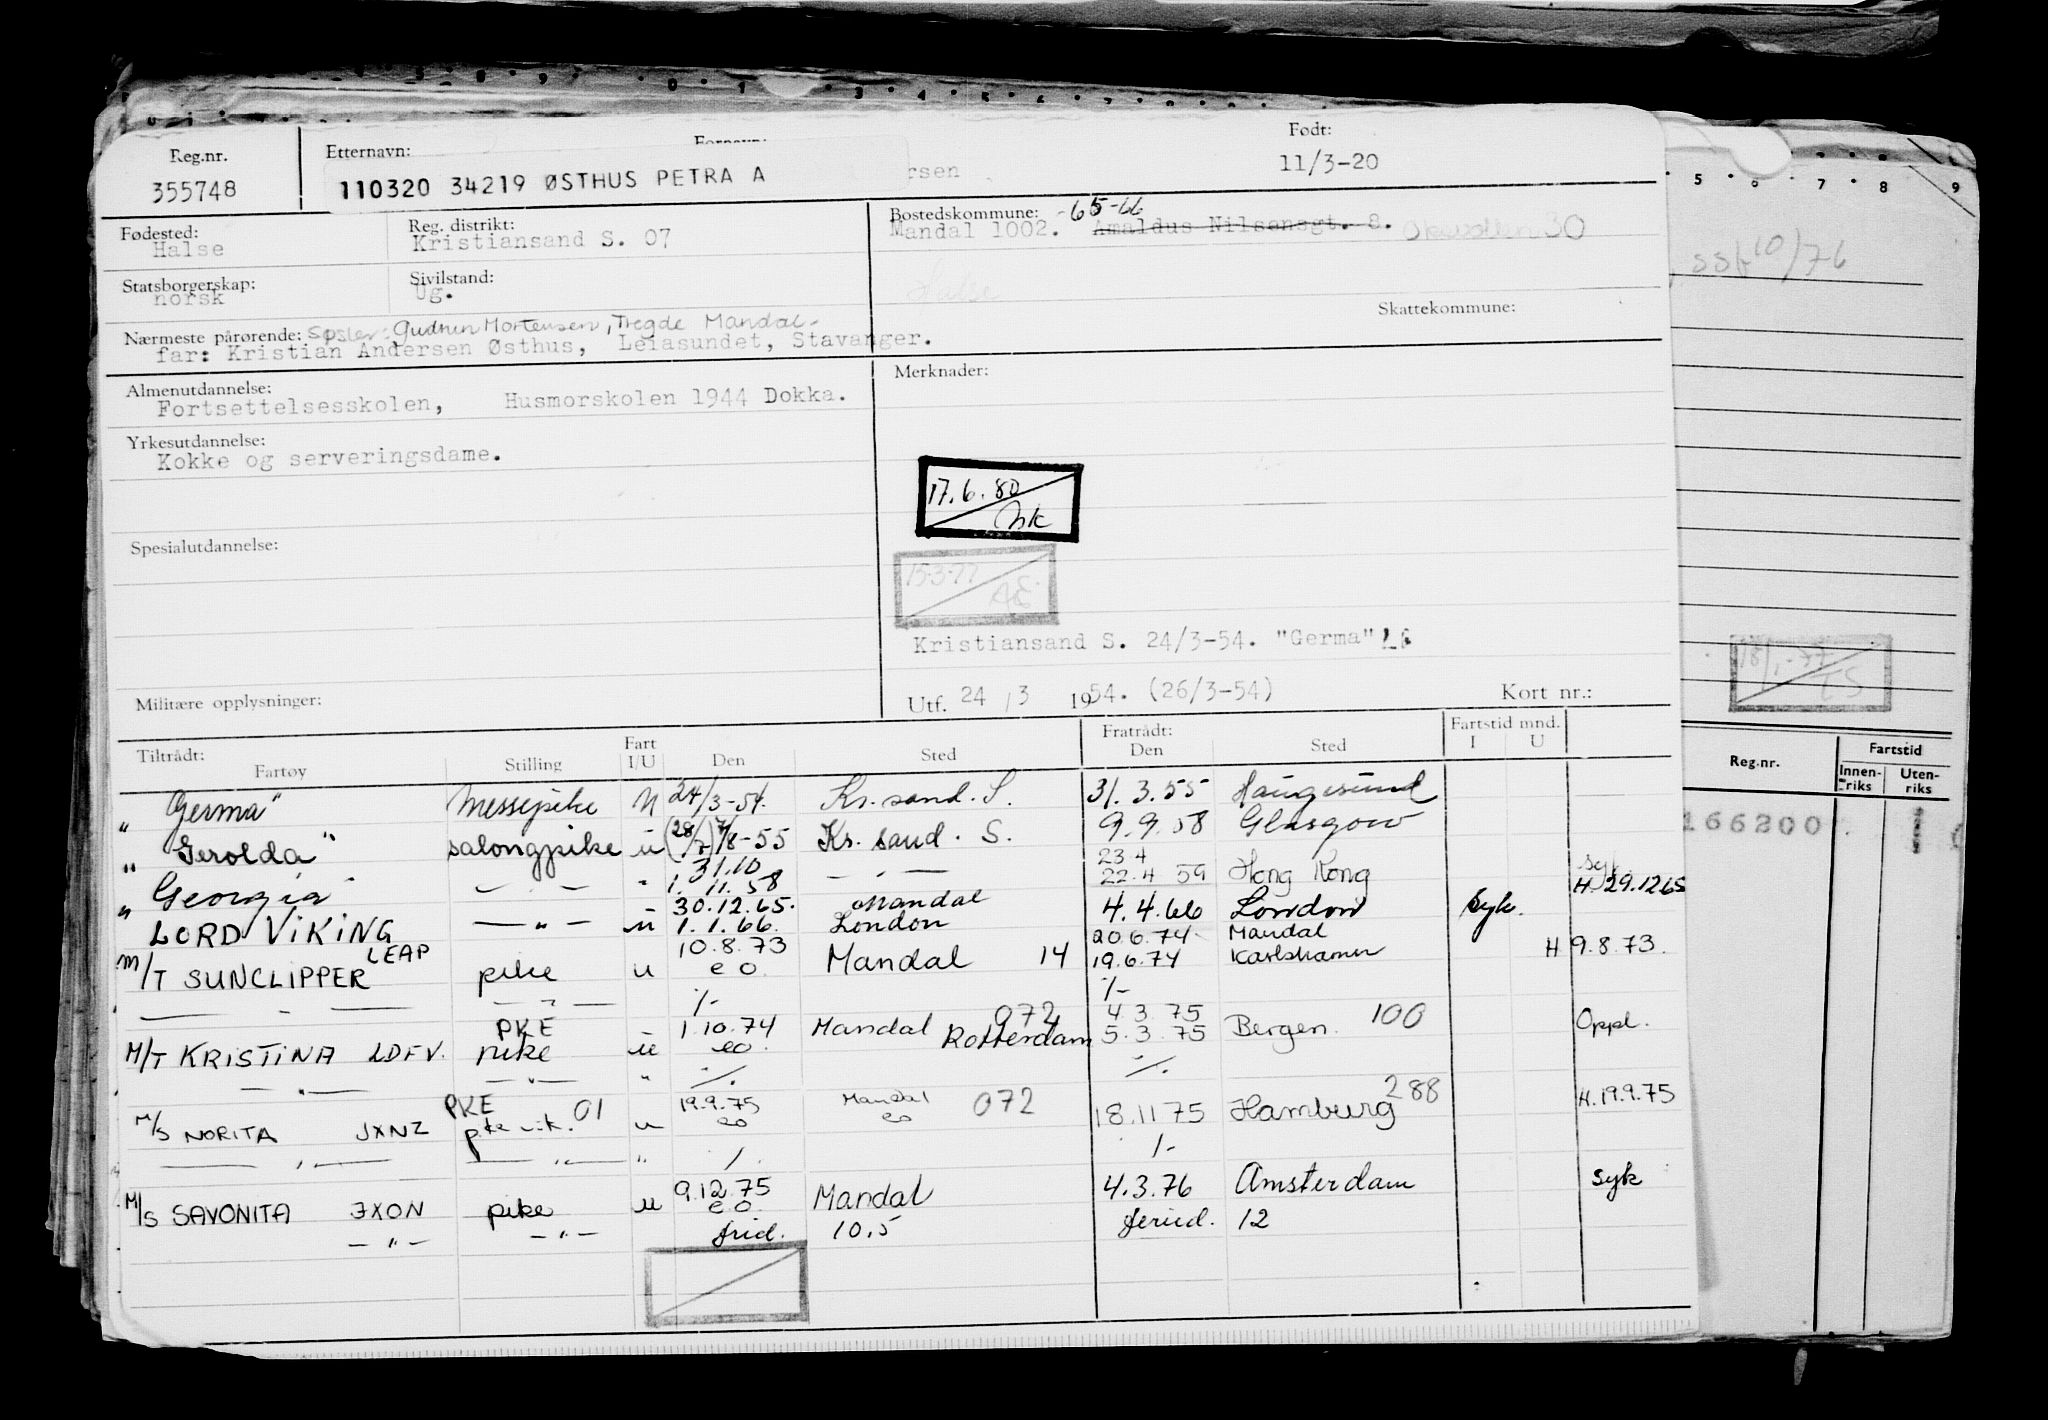 Reg.nr. Etternavn: Fornavn: Født:
355748 110320 34219 ØSTHUS PETRA A rsen 11/3-20
Fødested: Reg. distrikt: Bostedskommune: -65-66
Halse Kristiansand S. 07 Mandal 1002. Amaldus Nilsensgt. 8. 30
Statsborgerskap: Sivilstand:
norsk Ug. Halse
Skattekommune:
Nærmeste pårørende: Søster: Gudrun Mortensen, Tregde Mandal.
far: Kristian Andersen Østhus, Leiasundet, Stavanger.
Almenutdannelse: Merknader:
Fortsettelsesskolen, Husmorskolen 1944 Dokka.
Yrkesutdannelse:
Kokke og serveringsdame.
17.6.80
Spesialutdannelse:
15.3.77
AE
Kristiansand S. 24/3-54. "Germa"
Militære opplysninger: Utf. 24 / 3 1954. (26/3-54) Kort nr.:
Tiltrådt: Fart Fratrådt: Fartstid mnd.
Fartøy Stilling I/U Den Sted Den Sted I U
"Germa" Messepike U 24/3-54. Kr.sand. S. 31.3.55 Haugesund
"Gerolda" salongpike u (28/7) 7/8-55 Kr. sand. S. 9.9.58 Glasgow
31.10 23 4 syk
"Georgia" — " — " 1. 11. 58 — " — 22.4 59 Hong Kong H. 29.12 65
30.12.65. Mandal
LORD VIKING — " — u 1.1.66. London 4.4.66 London Syk.
LEAP 10.8.73 20.6.74 Mandal
M/T SUNCLIPPER pike u e o. Mandal 14 19.6.74 Karlshamn H 9.8.73.
— " — — " — ·/- ·/-
PKE 1.10.74 Mandal 072 4.3.75
M/T KRISTINA LDFV. pike u eo. Rotterdam 5.3.75 Bergen. 100 Oppl.
— " — — " — " ·/. ·/.
PKE 01 19.9.75 Mandal 072 288
M/S NORITA JXNZ pike vik. u eo eo 18.11 75 Hamburg H. 19.9.75
— " — — " — " ·/. ·/-
9.12.75
M/S SAVONITA JXON pike u e o. Mandal 4.3.76 Amsterdam syk
— " — — " — frid. 10.5 feried. 12
5 · 6 · 7 · 8 9
ssf 10/76
18/1-77
Reg.nr. Fartstid
Innen-riks Uten-riks
166200